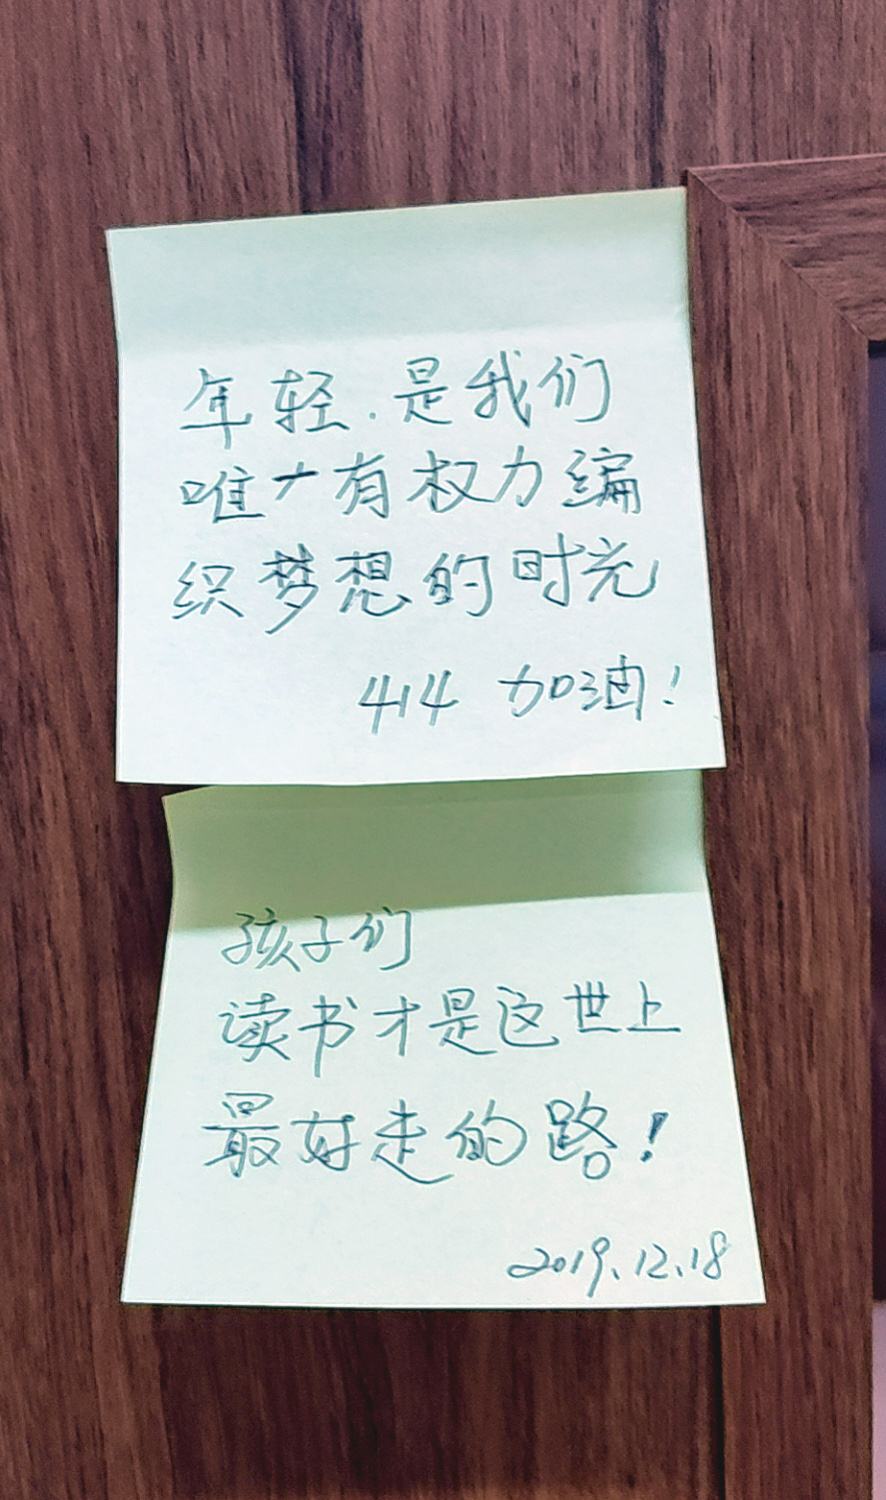 年轻.是我们
唯一有权力编
织梦想的时光
414 加油!
孩子们
读书才是这世上
最好走的路!
2019.12.18